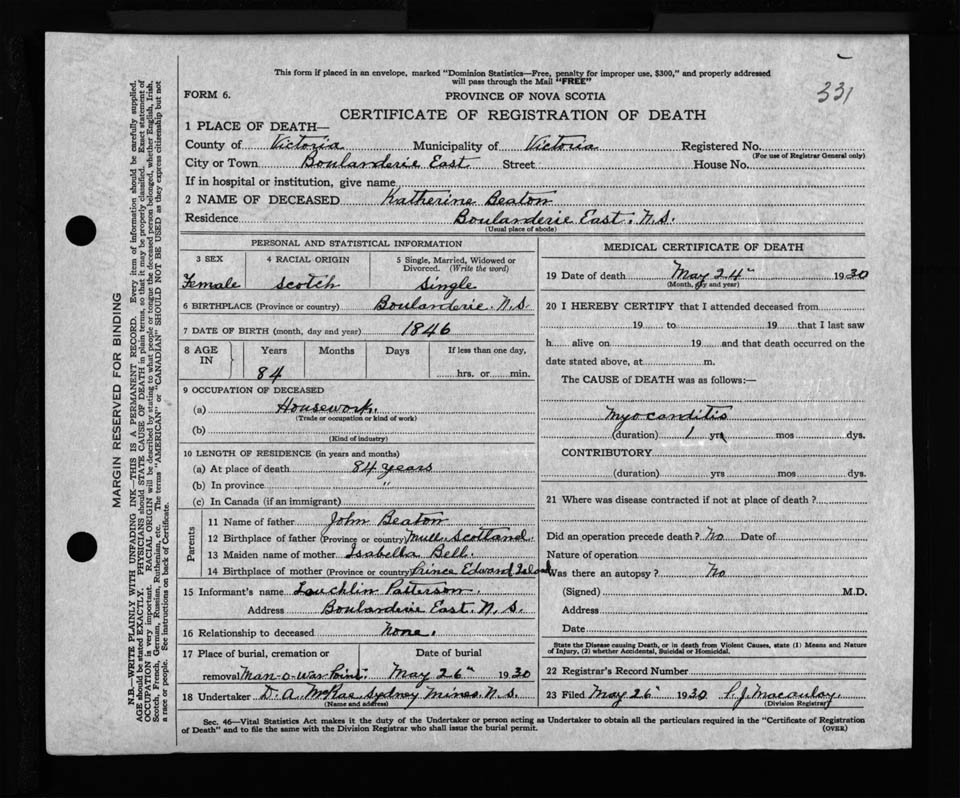 This form if placed in an envelope, marked "Dominion Statistics—Free, penalty for improper use, $300," and properly addressed
will pass through the Mail "FREE"
331
FORM 6.
PROVINCE OF NOVA SCOTIA
CERTIFICATE OF REGISTRATION OF DEATH
1 PLACE OF DEATH—
County of Victoria Municipality of Victoria Registered No.
(For use of Registrar General only)
City or Town Boulanderie East Street House No.
If in hospital or institution, give name
2 NAME OF DECEASED Katherine Beaton
Residence Boulanderie East. N.S.
(Usual place of abode)
PERSONAL AND STATISTICAL INFORMATION
3 SEX 4 RACIAL ORIGIN 5 Single, Married, Widowed or
Divorced. (Write the word)
Female Scotch Single
6 BIRTHPLACE (Province or country) Boulanderie. N.S.
7 DATE OF BIRTH (month, day and year) 1846
8 AGE IN Years Months Days If less than one day,
84 hrs. or min.
9 OCCUPATION OF DECEASED
(a) Housework.
(Trade or occupation or kind of work)
(b)
(Kind of industry)
10 LENGTH OF RESIDENCE (in years and months)
(a) At place of death 84 years
(b) In province "
(c) In Canada (if an immigrant)
Parents
11 Name of father John Beaton
12 Birthplace of father (Province or country) Mull Scotland.
13 Maiden name of mother Isabella Bell.
14 Birthplace of mother (Province or country) Prince Edward Island
15 Informant's name Lauchlin Patterson.
Address Boulandrie East. N.S.
16 Relationship to deceased None.
17 Place of burial, cremation or Date of burial
removal Man-o-War Point. May 26" 1930
18 Undertaker D. A. McRae Sydney Mines N.S.
(Name and address)
MEDICAL CERTIFICATE OF DEATH
19 Date of death May 24" 1930
(Month, day and year)
20 I HEREBY CERTIFY that I attended deceased from
19 to 19 that I last saw
h alive on 19 and that death occurred on the
date stated above, at m.
The CAUSE of DEATH was as follows:—
Myocarditis
(duration) 1 yrs mos dys.
CONTRIBUTORY
(duration) yrs mos dys.
21 Where was disease contracted if not at place of death ?
Did an operation precede death ? No Date of
Nature of operation
Was there an autopsy ? No
(Signed) M.D.
Address
Date
State the Disease causing Death, or in death from Violent Causes, state (1) Means and Nature
of Injury, (2) whether Accidental, Suicidal or Homicidal.
22 Registrar's Record Number
23 Filed May 26" 1930 P. J. Macaulay.
(Division Registrar)
Sec. 46—Vital Statistics Act makes it the duty of the Undertaker or person acting as Undertaker to obtain all the particulars required in the "Certificate of Registration
of Death" and to file the same with the Division Registrar who shall issue the burial permit.
(OVER)
MARGIN RESERVED FOR BINDING
N.B.—WRITE PLAINLY WITH UNFADING INK—THIS IS A PERMANENT RECORD. Every item of information should be carefully supplied.
AGE should be stated EXACTLY. PHYSICIANS should STATE CAUSE OF DEATH in plain terms, so that it may be properly classified. Exact statement of
OCCUPATION is very important. RACIAL ORIGIN will be described by stating to what people or tongue the deceased person belonged, whether English, Irish,
Scotch, French, German, Russian, Ruthenian, etc. The terms "AMERICAN" or "CANADIAN" SHOULD NOT BE USED as they express citizenship but not
a race or people. See instructions on back of Certificate.